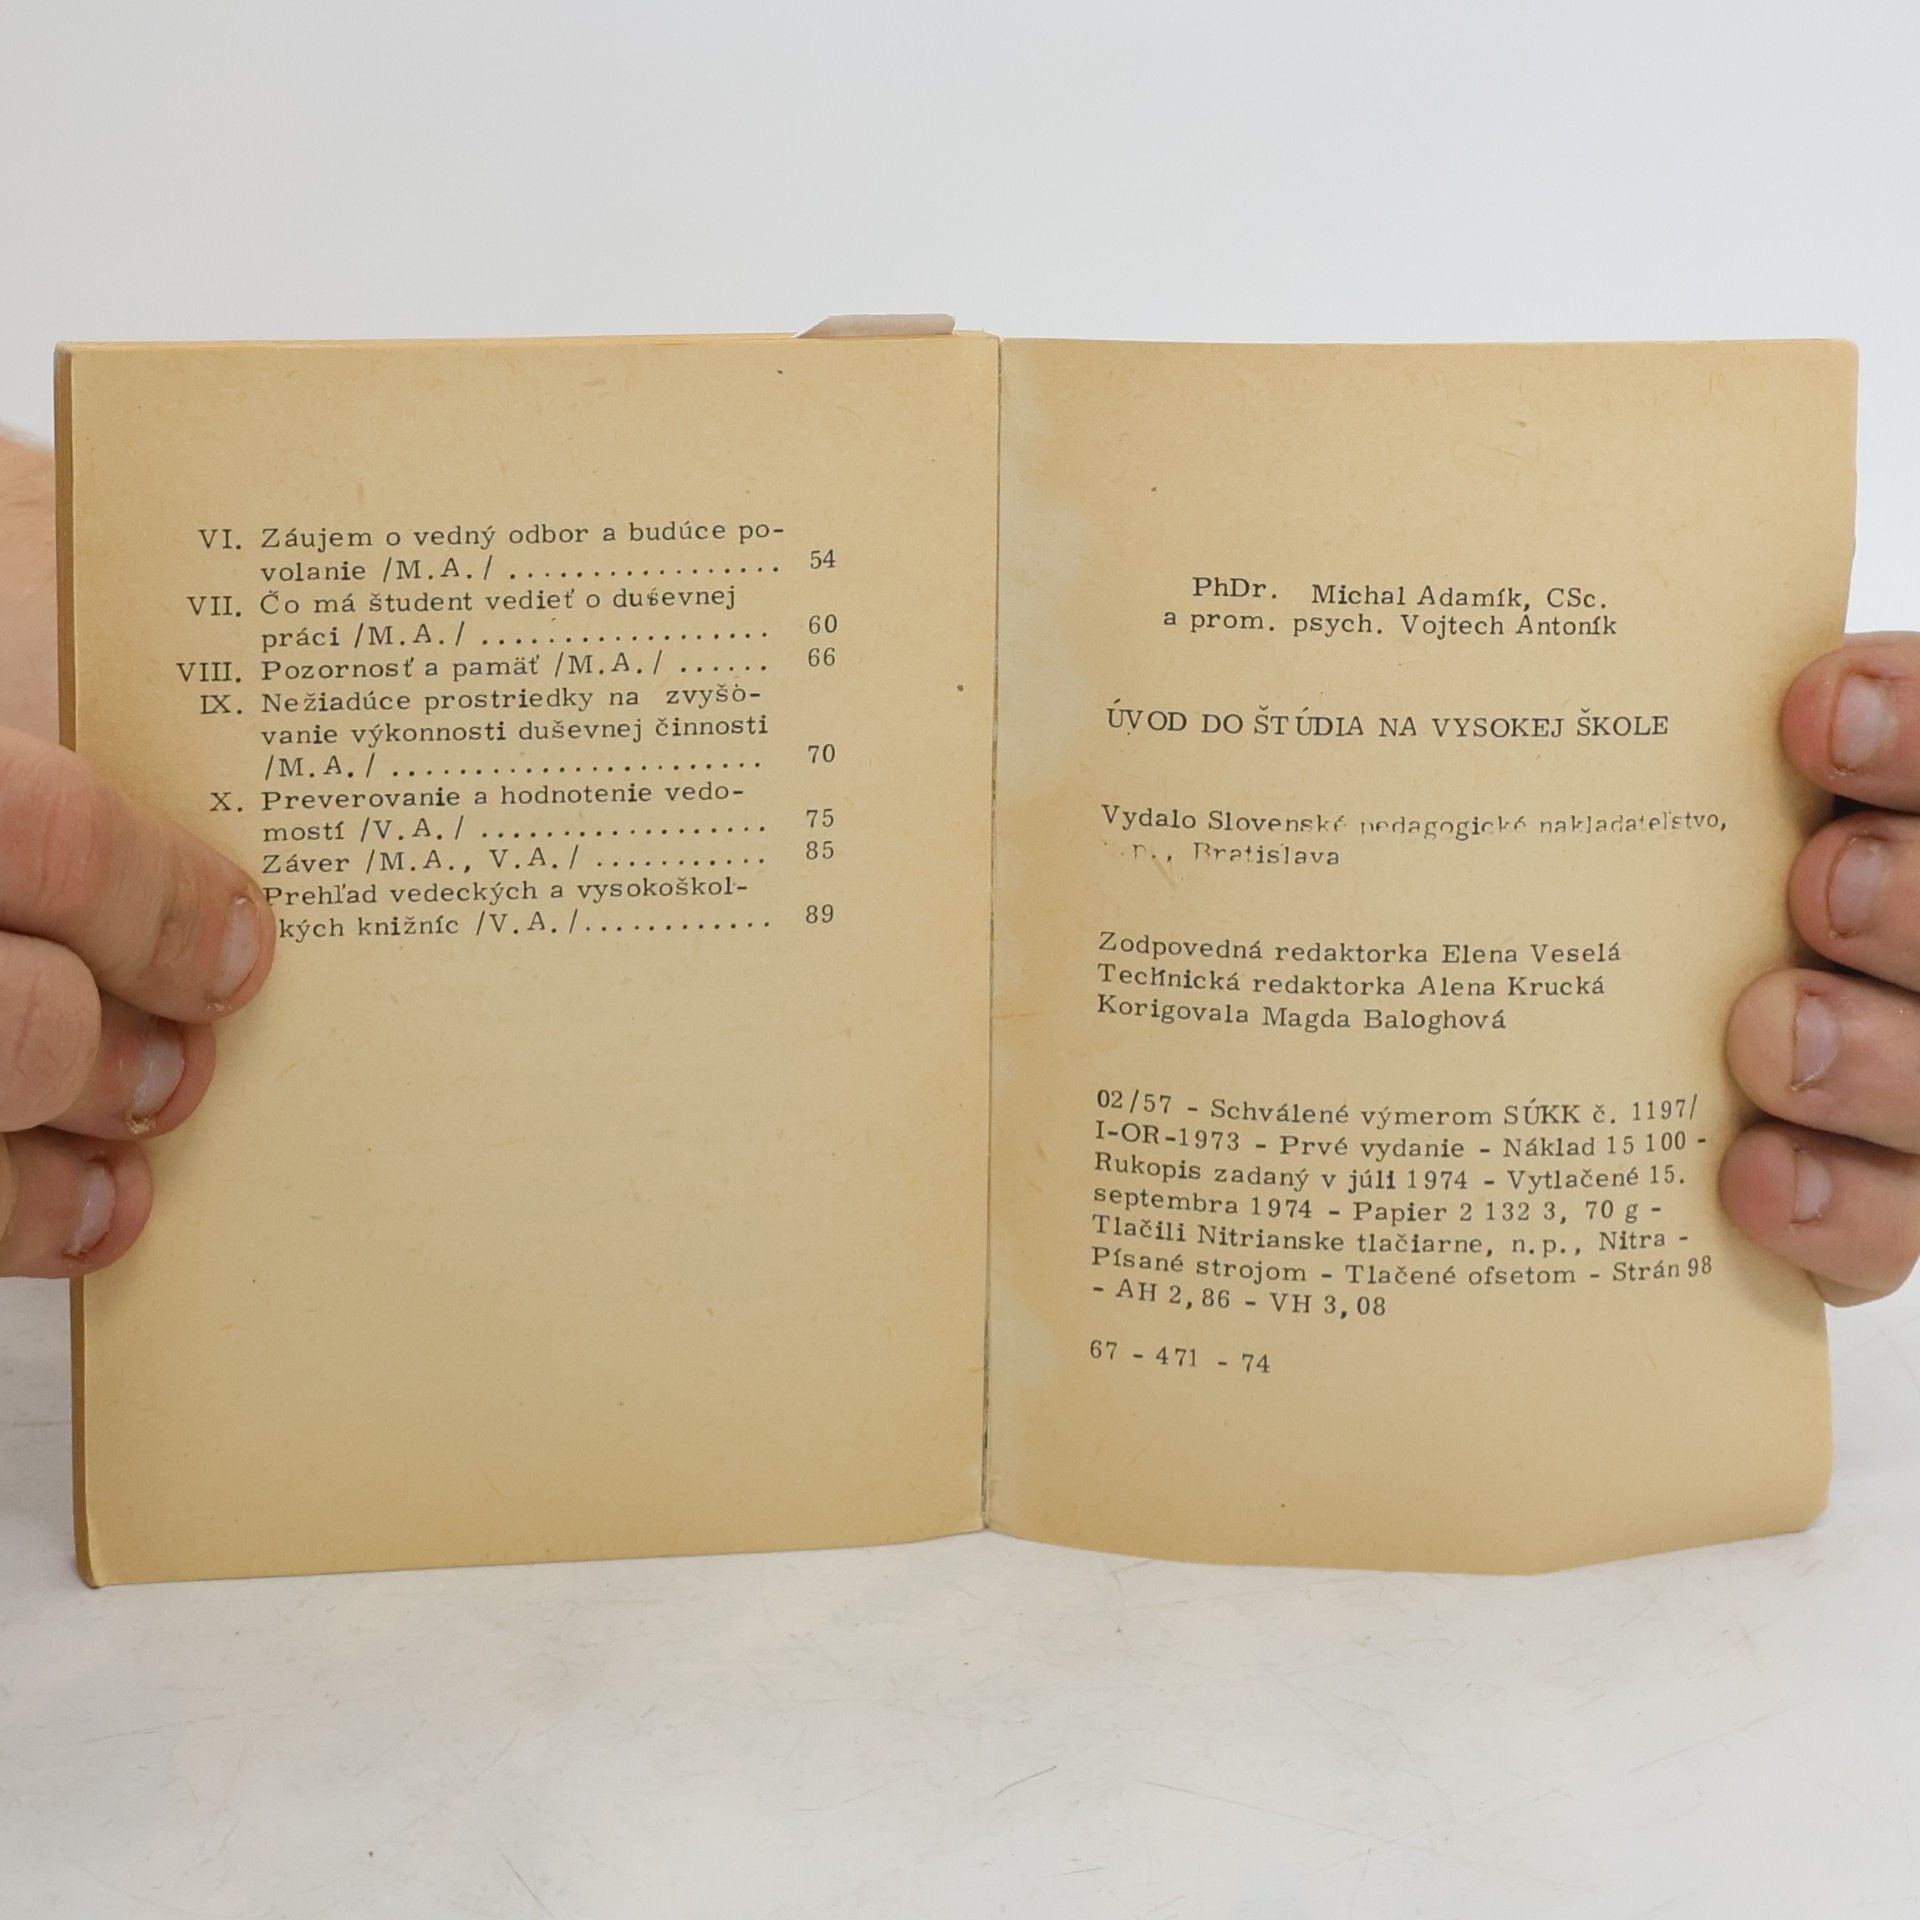 VI. Záujem o vedný odbor a budúce po-
volanie /M.A./ ................. 54
VII. Čo má študent vedieť o duševnej
práci /M.A./ .................. 60
VIII. Pozornosť a pamäť /M.A./ ...... 66
IX. Nežiadúce prostriedky na zvyšo-
vanie výkonnosti duševnej činnosti
/M.A./ ....................... 70
X. Preverovanie a hodnotenie vedo-
mostí /V.A./ .................. 75
Záver /M.A., V.A./ ........... 85
Prehľad vedeckých a vysokoškol-
kých knižníc /V.A./............ 89
PhDr. Michal Adamík, CSc.
a prom. psych. Vojtech Antoník
ÚVOD DO ŠTÚDIA NA VYSOKEJ ŠKOLE
Vydalo Slovenské pedagogické nakladateľstvo,
Bratislava
Zodpovedná redaktorka Elena Veselá
Technická redaktorka Alena Krucká
Korigovala Magda Baloghová
02/57 - Schválené výmerom SÚKK č. 1197/
I-OR-1973 - Prvé vydanie - Náklad 15 100 -
Rukopis zadaný v júli 1974 - Vytlačené 15.
septembra 1974 - Papier 2 132 3, 70 g -
Tlačili Nitrianske tlačiarne, n.p., Nitra -
Písané strojom - Tlačené ofsetom - Strán 98
- AH 2,86 - VH 3,08
67 - 471 - 74